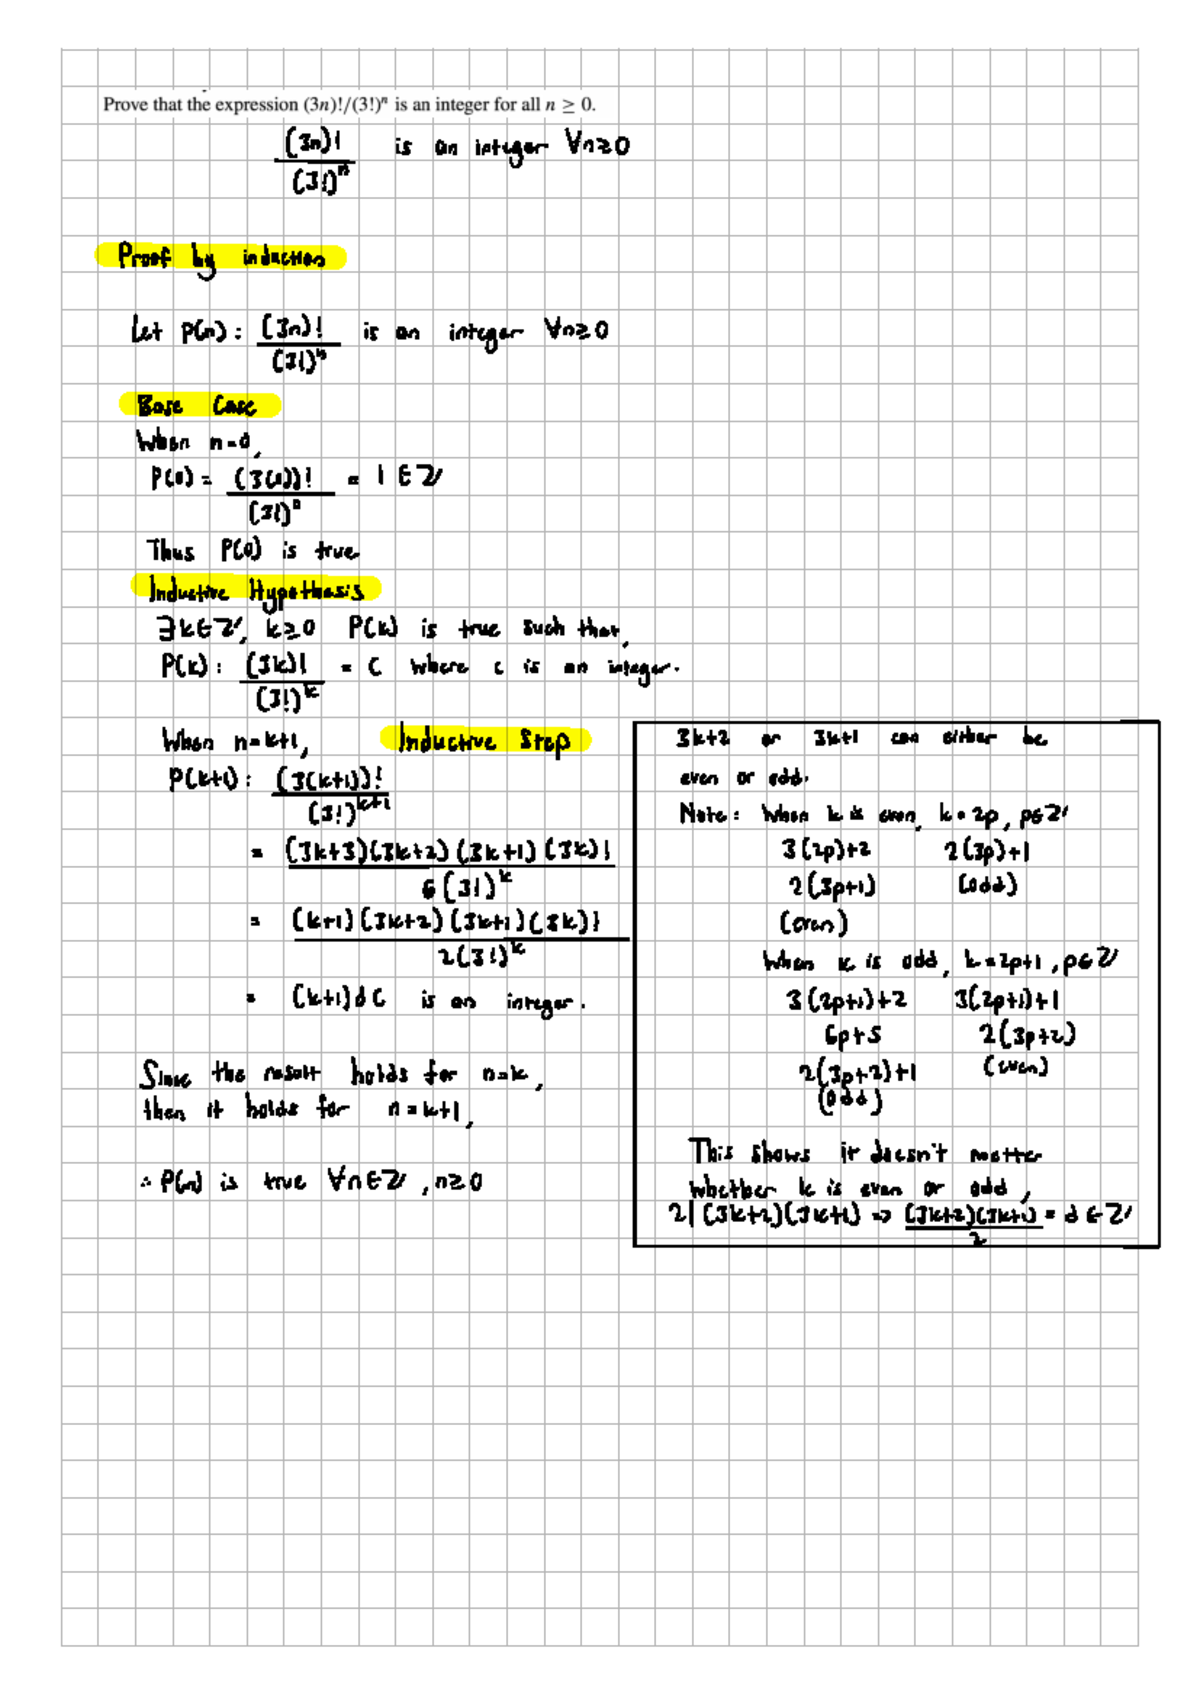 Prove that the expression (3n)!/(3!)ⁿ is an integer for all n ≥ 0.
(3n)!/(3!)ⁿ is an integer ∀n≥0
Proof by induction
Let P(n): (3n)!/(3!)ⁿ is an integer ∀n≥0
Base Case
When n=0,
P(0) = (3(0))!/(3!)⁰ = 1 ∈ ℤ
Thus P(0) is true
Inductive Hypothesis
∃k∈ℤ, k≥0 P(k) is true such that,
P(k): (3k)!/(3!)ᵏ = c where c is an integer.
When n=k+1, Inductive Step
P(k+1): (3(k+1))!/(3!)ᵏ⁺¹
= (3k+3)(3k+2)(3k+1)(3k)!/6(3!)ᵏ
= (k+1)(3k+2)(3k+1)(3k)!/2(3!)ᵏ
= (k+1)dc is an integer.
Since the result holds for n=k,
then it holds for n=k+1,
∴ P(n) is true ∀n∈ℤ, n≥0
3k+2 or 3k+1 can either be
even or odd.
Note: When k is even, k=2p, p∈ℤ
3(2p)+2 2(3p)+1
2(3p+1) (odd)
(even)
When k is odd, k=2p+1, p∈ℤ
3(2p+1)+2 3(2p+1)+1
6p+5 2(3p+2)
2(3p+2)+1 (even)
(odd)
This shows it doesn't matter
whether k is even or odd,
2|(3k+2)(3k+1) => (3k+2)(3k+1)/2 = d ∈ ℤ